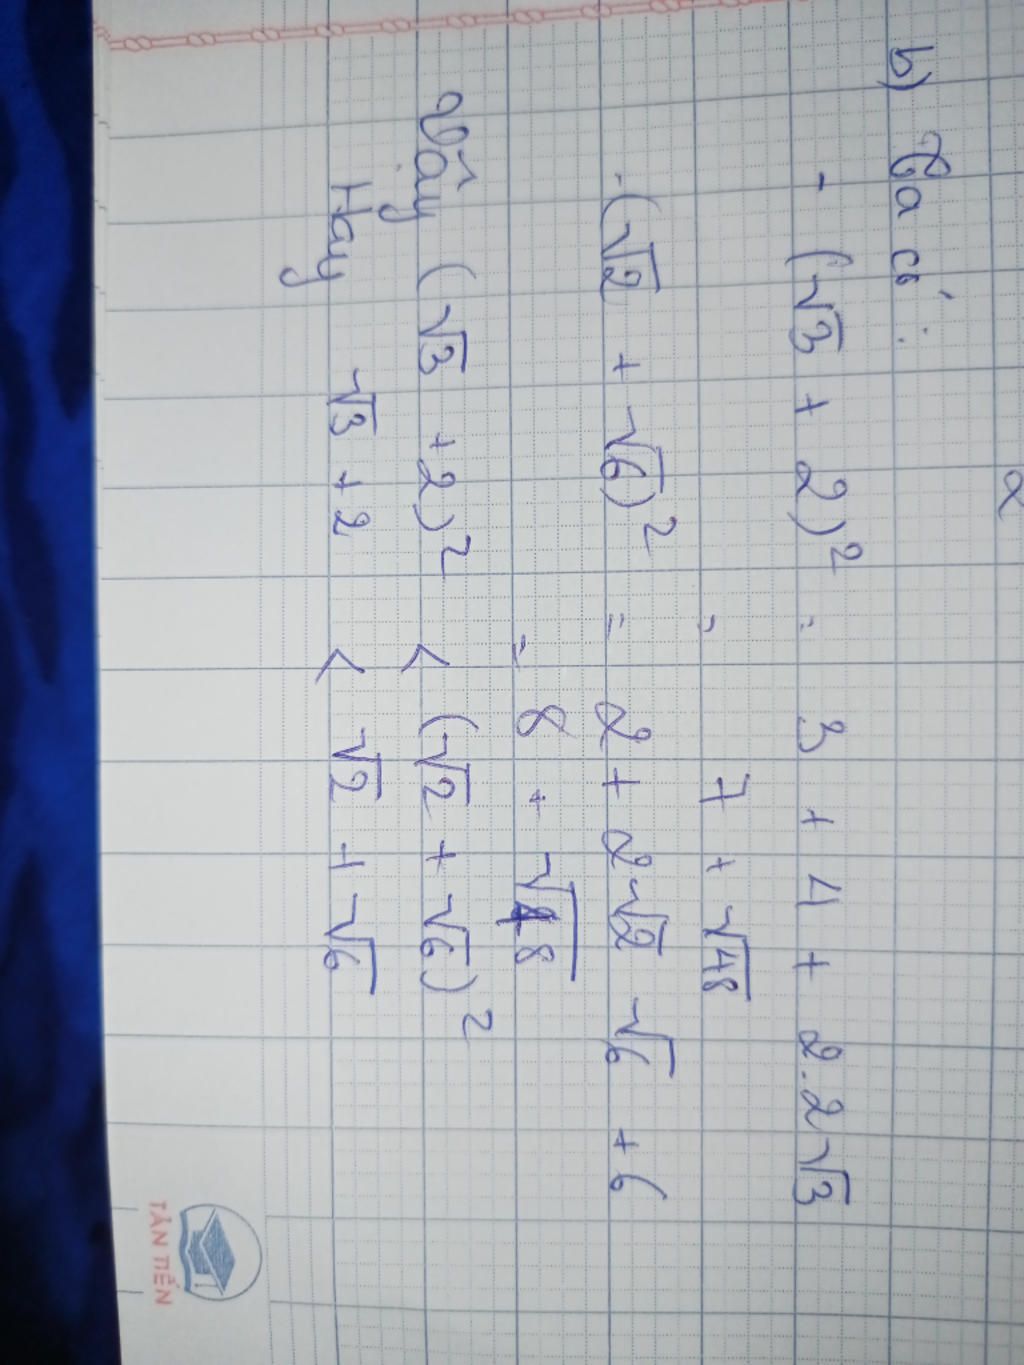 2
b) Ta có :
- (√3 + 2)² = 3 + 4 + 2.2√3
= 7 + √48
- (√2 + √6)² = 2 + 2√2 √6 + 6
= 8 + √48
Vậy (√3 + 2)² < (√2 + √6)²
Hay √3 + 2 < √2 + √6
TÂN TIẾN